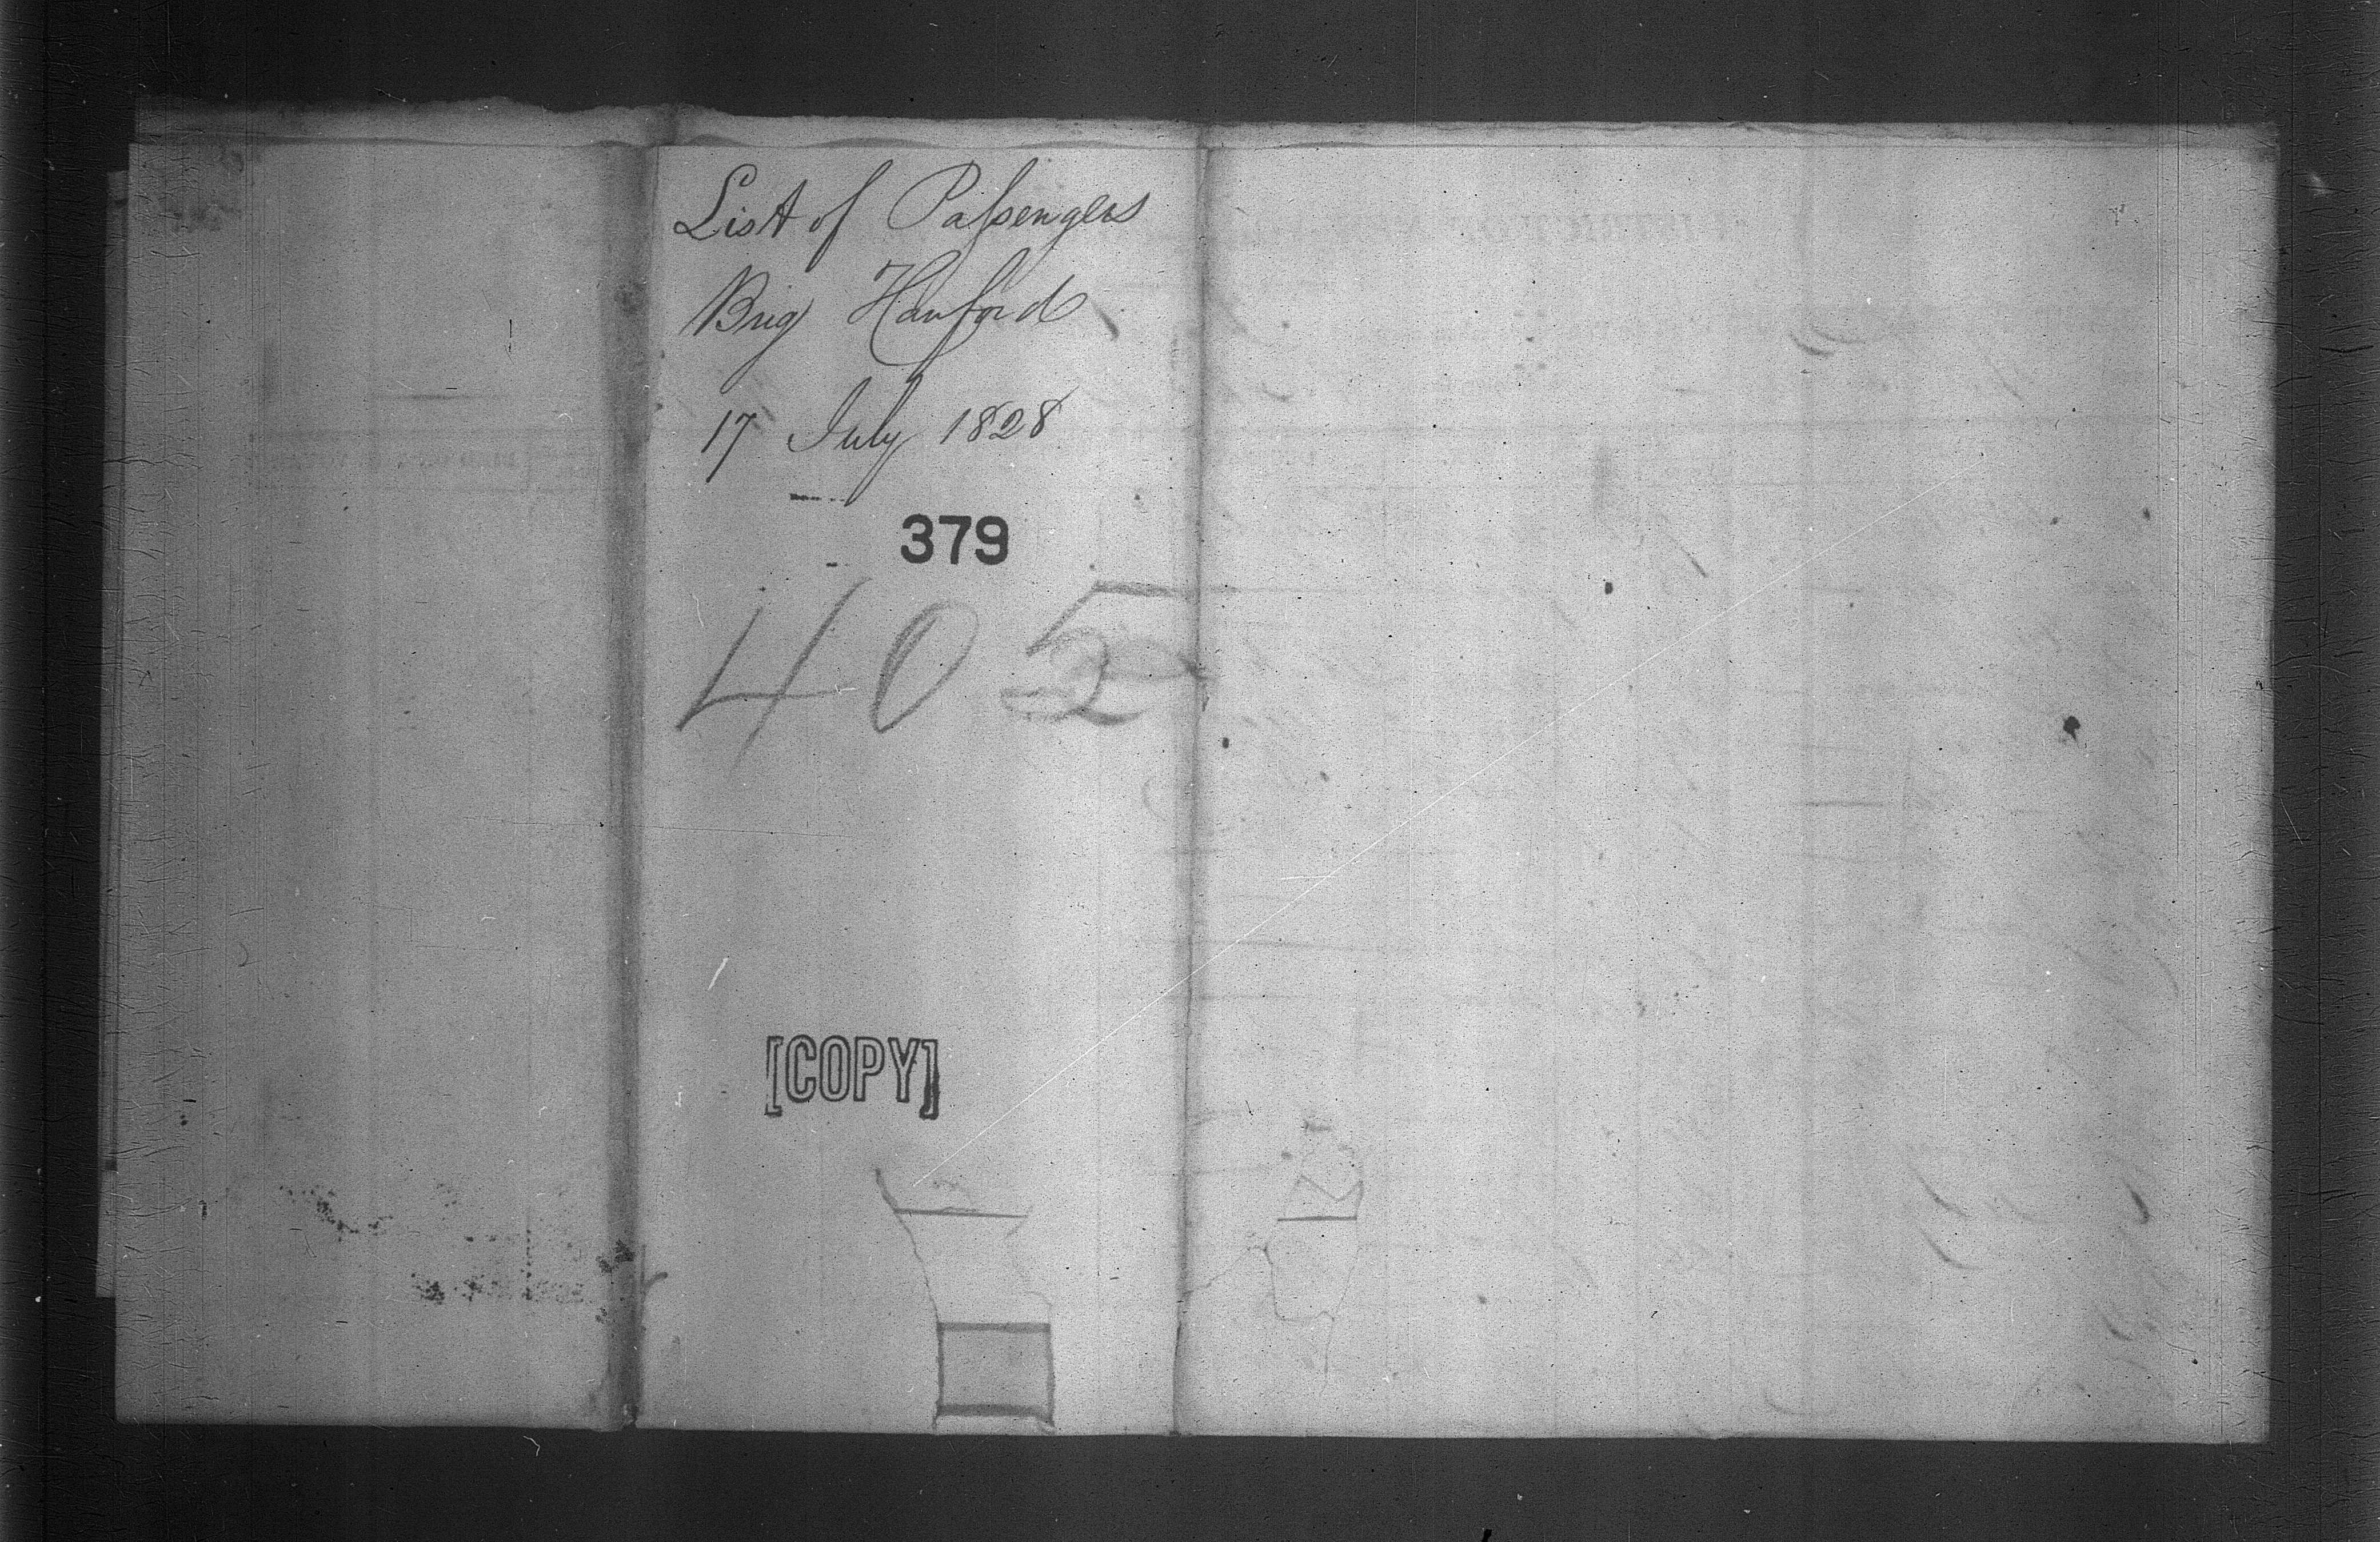 List of Passengers
Brig Hanford
17 July 1828
379
405
[COPY]